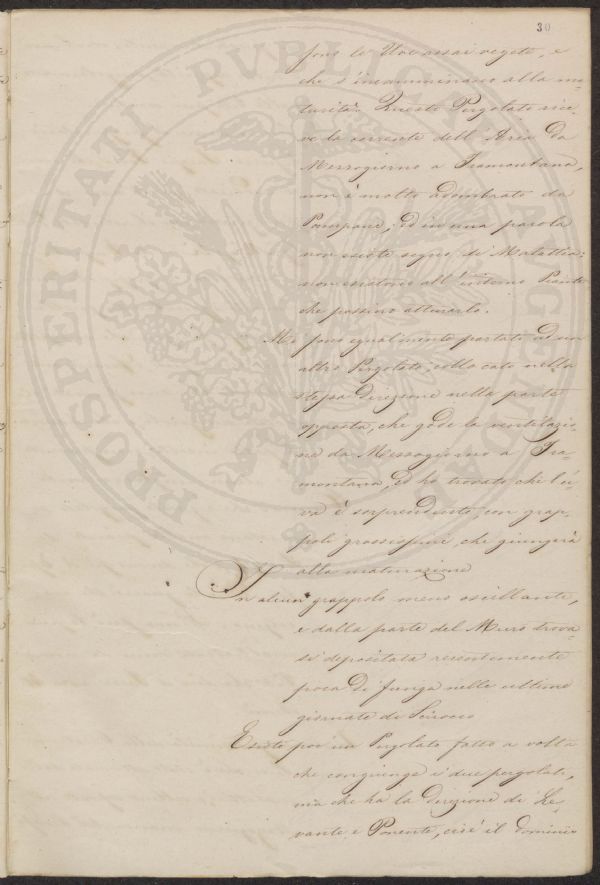 30
sono le Uve assai vegete, e
che s'incamminano alla ma-
turità. Questo Pergolato rice-
ve la corrente dell'Aria da
Mezzogiorno a Tramontana,
non è molto adombrato da
Pampane, ed in una parola
non esiste segno di Malattia:
non esistono all'intorno Piante
che possino attivarlo.
Mi sono egualmente portato ad un
altro Pergolato, collocato nella
stessa Direzione nella parte
opposta, che gode la ventilazio-
ne da Mezzogiorno a Tra-
montana, ed ho trovato che l'u-
va è sorprendente, con grap-
poli grossissimi, che giungerà
alla maturazione
In alcun grappolo meno oscillante,
e dalla parte del Muro trova-
si depositata recentemente
poca di funga nelle ultime
giornate di Scirocco
Esiste poi un Pergolato fatto a volta
che congiunge i due pergolati,
ma che ha la direzione di Le-
vante e Ponente, cioè il dominio
PROSPERITATI PUBLICAE AUGENDAE